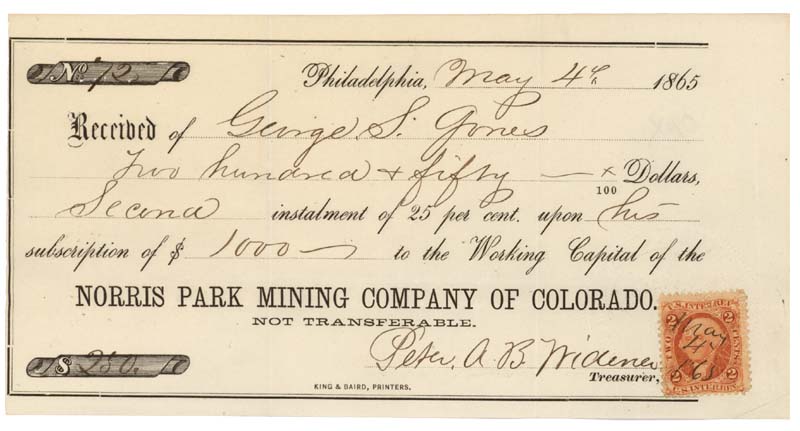 No 72
Philadelphia, May 4th 1865
Received of George S. Jones
Two hundred & fifty — x/100 Dollars,
Second instalment of 25 per cent. upon his
subscription of $ 1000 — to the Working Capital of the
NORRIS PARK MINING COMPANY OF COLORADO.
NOT TRANSFERABLE.
$ 250.
Peter. A. B Widener
Treasurer,
KING & BAIRD, PRINTERS.
U.S. INTER. REV.
2 2
TWO CENTS
May
4th
1865
2 2
U.S. INTER. REV.